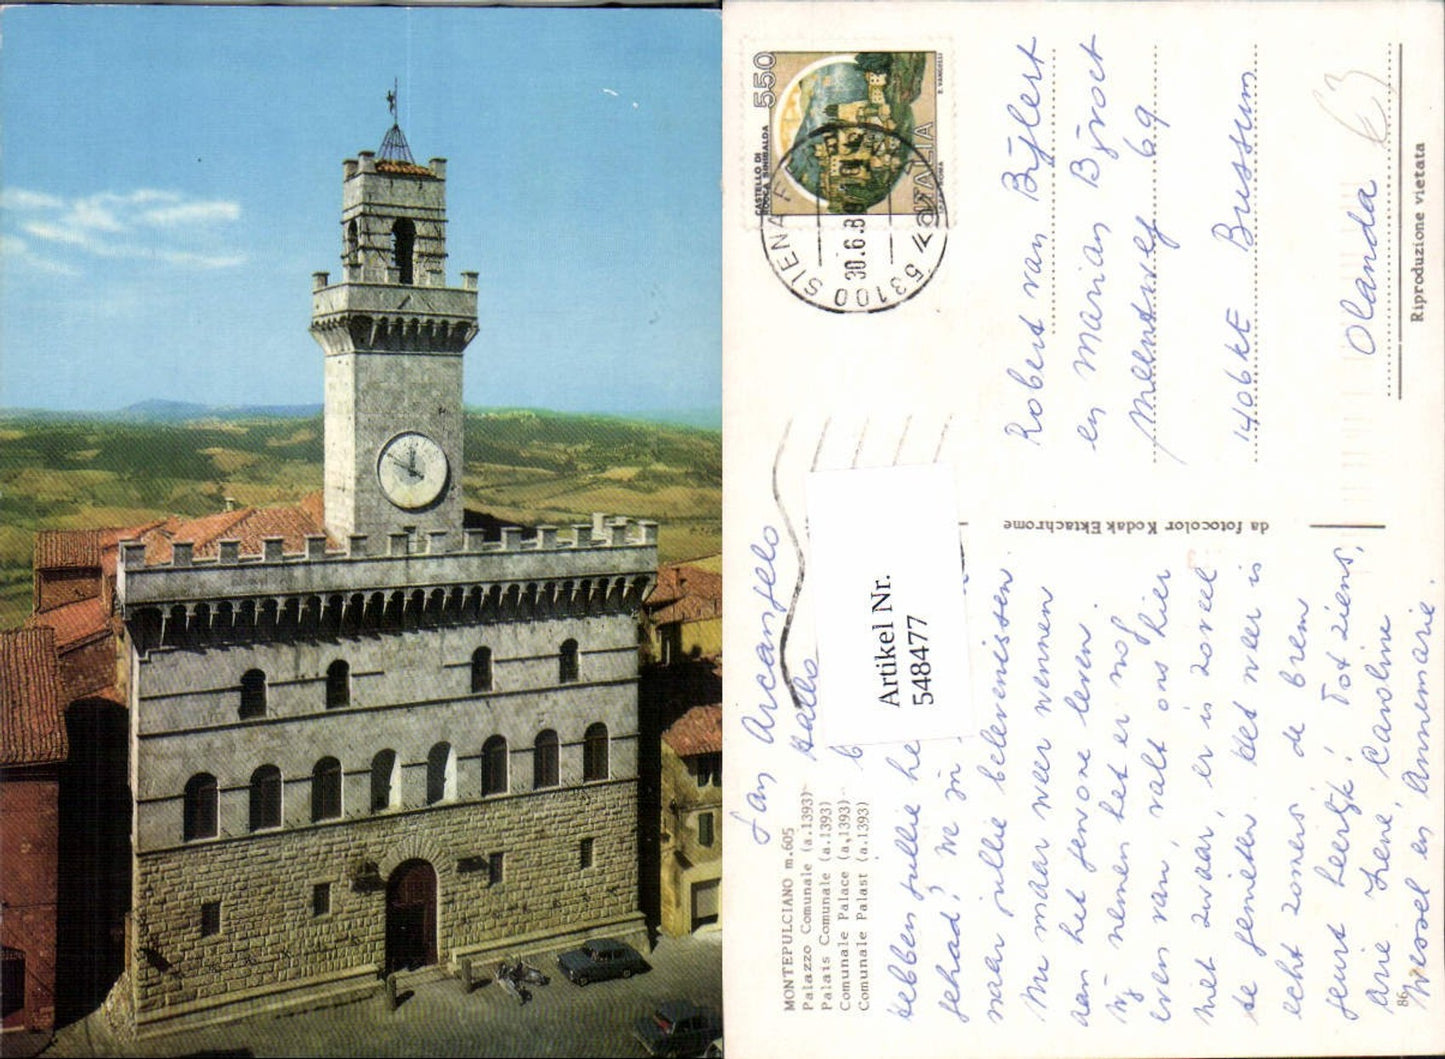 MONTEPULCIANO m.605
Palazzo Comunale (a.1393)
Palais Comunale (a.1393)
Comunale Palace (a,1393)
Comunale Palast (a.1393)
San Arcangelo
Hallo
Hebben jullie he
gehad? We zijn
naar jullie belevenissen.
Nu maar weer wennen
aan het gewone leven.
Wij nemen het er nog
even van, valt ons hier
niet zwaar, er is zoveel
te genieten. Het weer is
echt zomers de brem
geurt heerlijk! Tot ziens,
Arie Lené Caroline
Wessel en Annemarie.
86
Artikel Nr.
548477
da fotocolor Kodak Ektachrome
CASTELLO DI
ROCCA SINIBALDA
550
ITALIA
E. VANGELLI
ROMA
53100 SIENA F
30.6.8
Robert van Bijlert
en Marian Bijvoet
Meentweg 69
1406 KE Bussum
Olanda
Riproduzione vietata